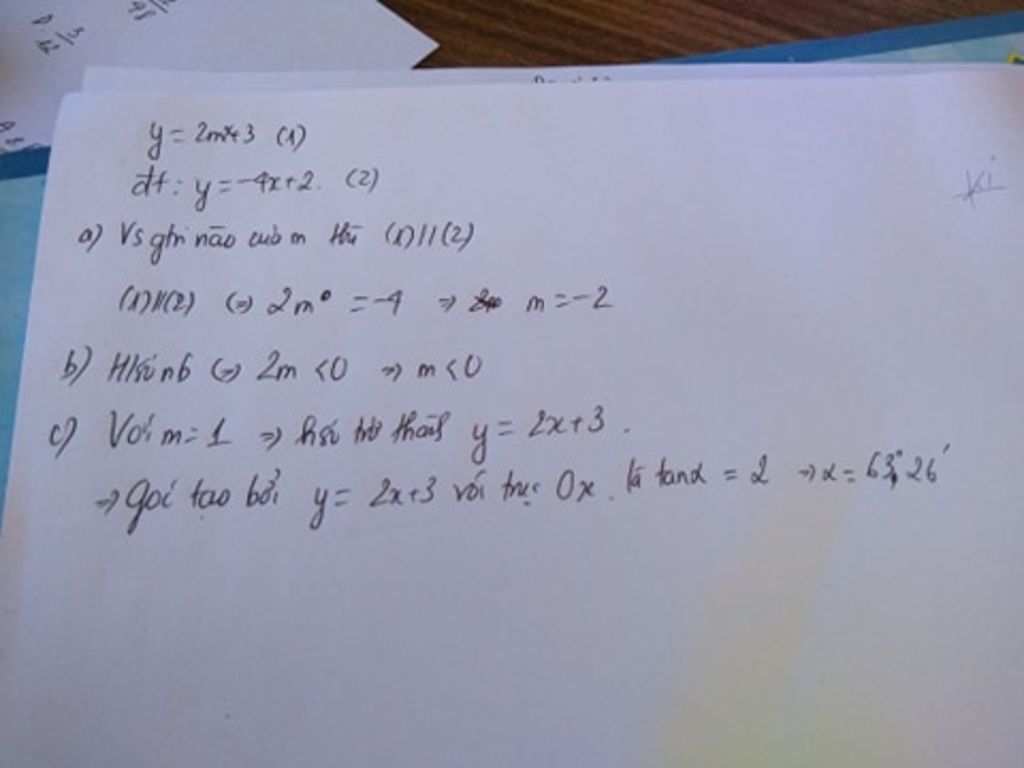 y = 2mx+3 (1)
đt: y = -4x+2. (2)
a) Vs gtri nào của m thì (1)//(2)
(1)//(2) <=> 2m = -4 => m = -2
b) Hsố nb <=> 2m <0 => m <0
c) Với m = 1 => hsố trở thành y = 2x+3.
=> góc tạo bởi y = 2x+3 với trục Ox. là tanα = 2 → α = 63°26'